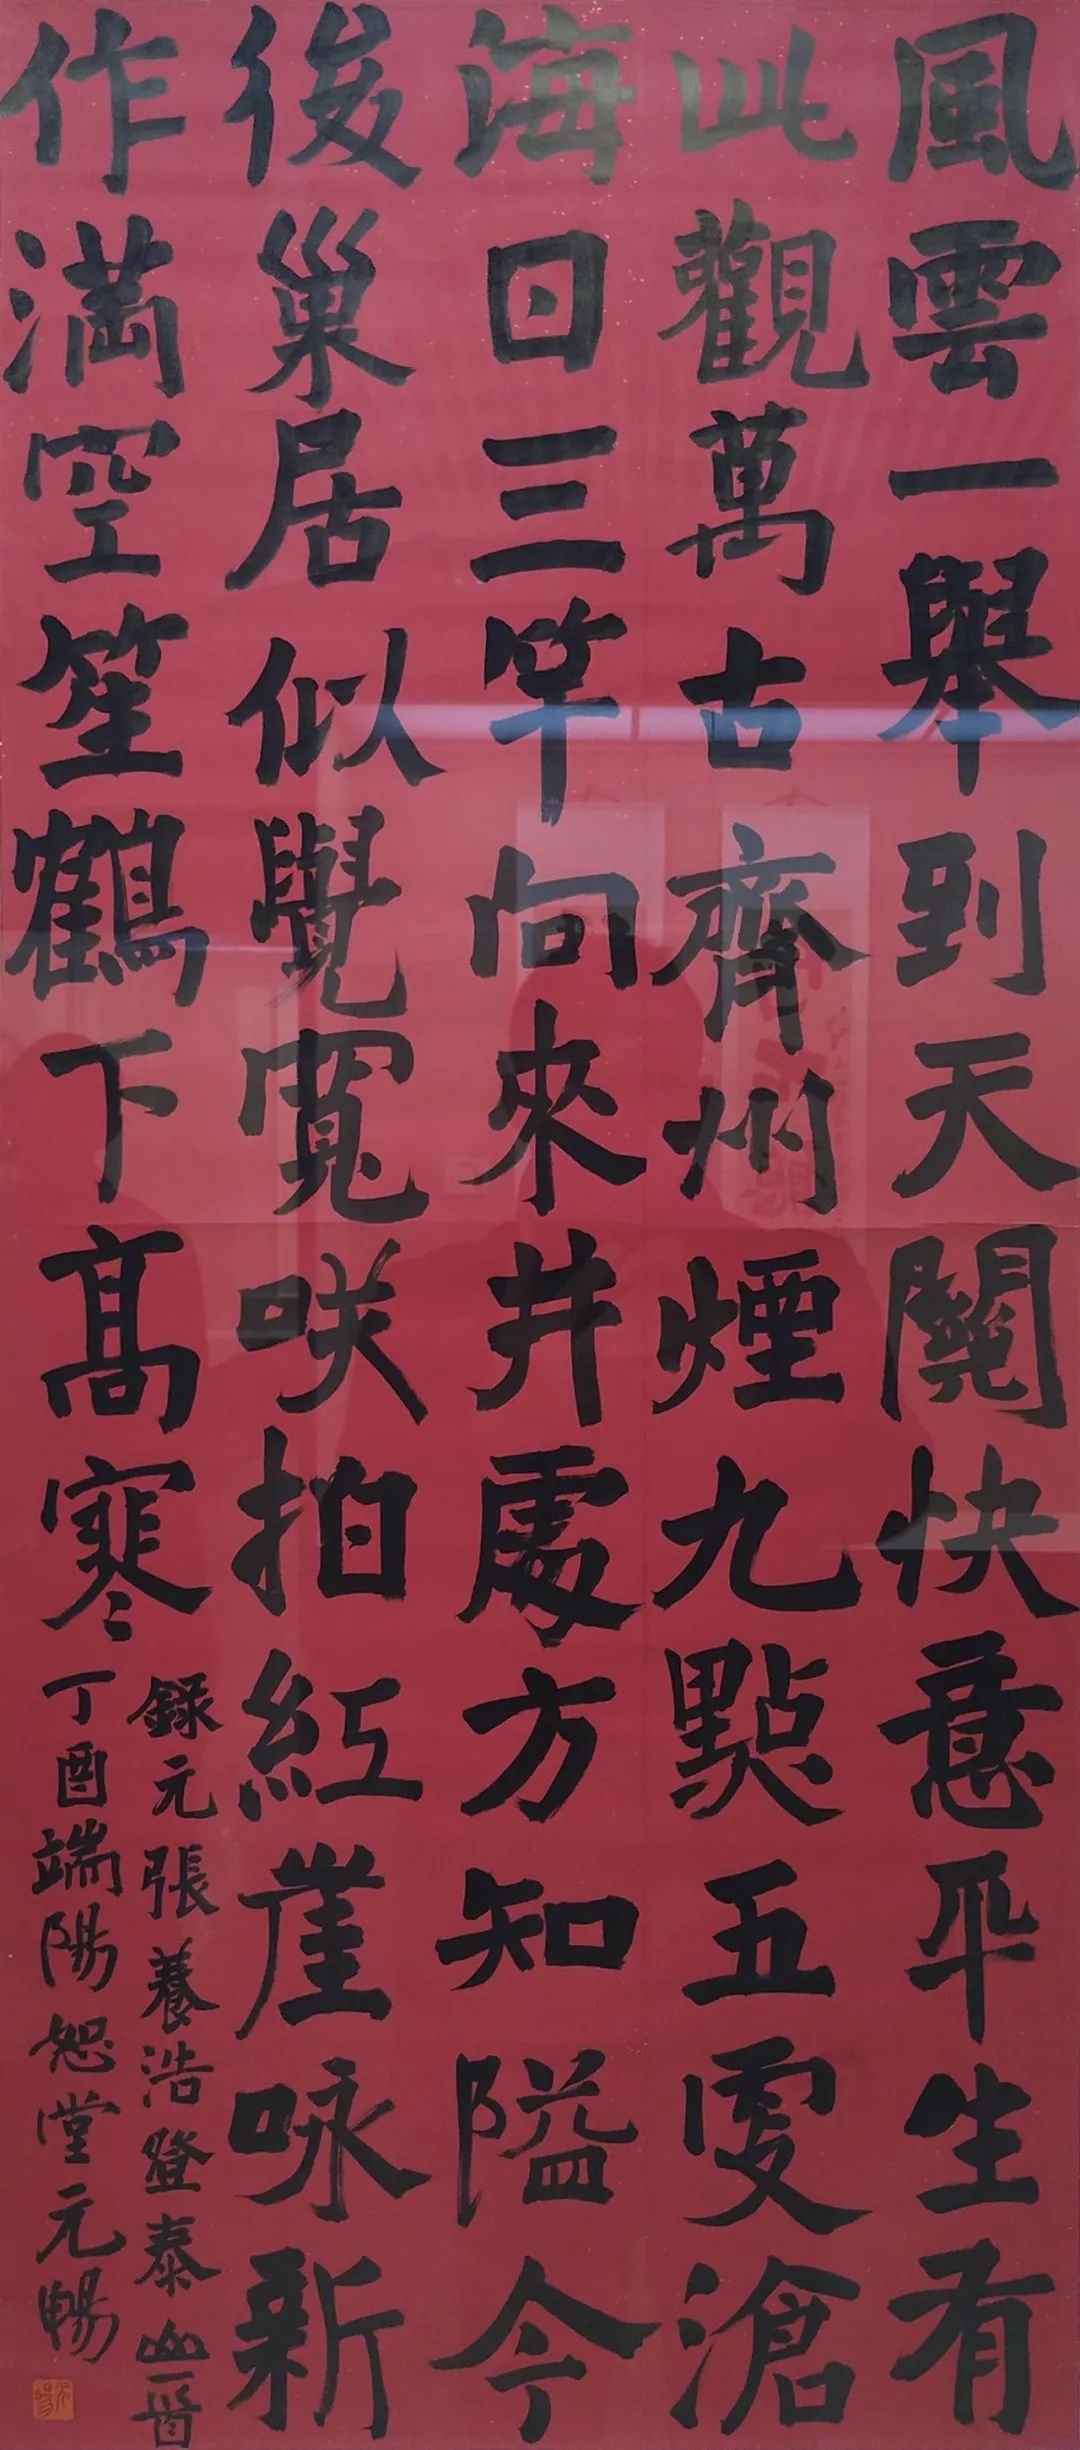 風雲一舉到天關快意平生有
此觀萬古齊州煙九點五更滄
海日三竿向來井處方知隘今
後巢居似覺寬咲拍紅崖咏新
作滿空笙鶴下高寒
錄元張養浩登泰山一首
丁酉端陽恕堂元暢